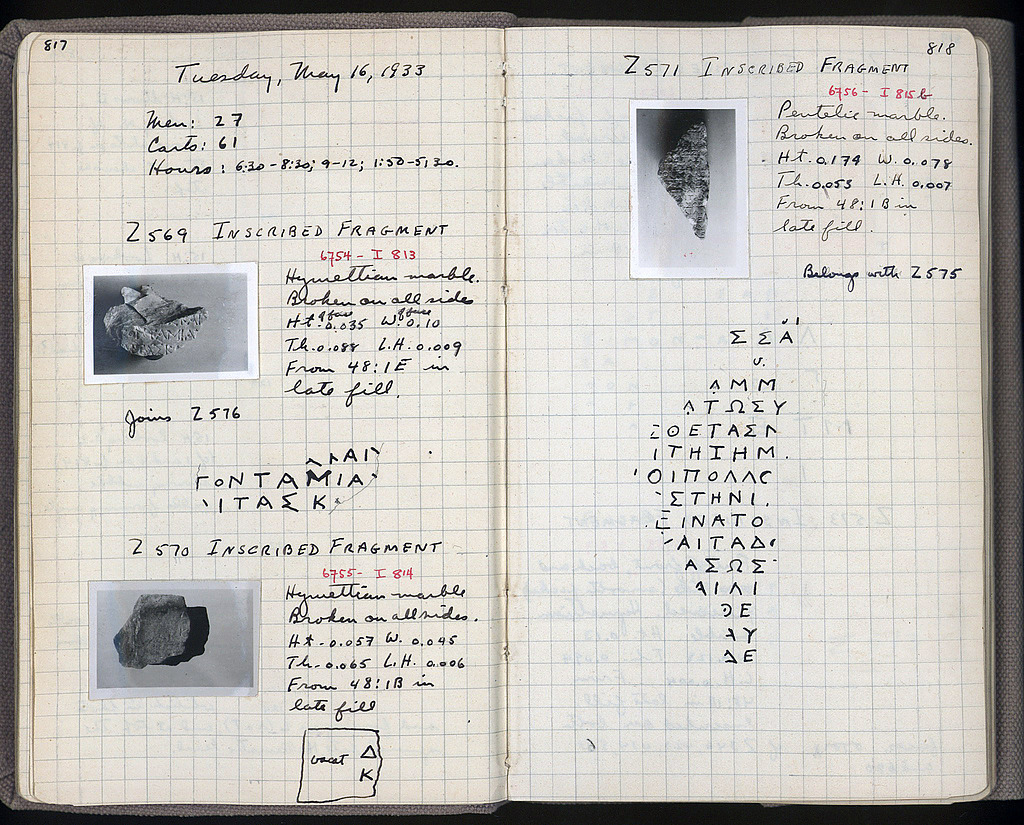 817
Tuesday, May 16, 1933
Men: 27
Carts: 61
Hours: 6:30-8:30; 9-12; 1:30-5:30.
Z 569 INSCRIBED FRAGMENT
6754 - I 813
Hymettian marble.
Broken on all sides
of face of face
Ht. 0.035 W. 0.10
Th. 0.088 L.H. 0.009
From 48:1E in
late fill.
Joins Z 576
ΑΙ
ΟΝΤΑΜΙΑ
ΙΤΑΣΚ
Z 570 INSCRIBED FRAGMENT
6755 - I 814
Hymettian marble
Broken on all sides.
Ht. 0.057 W. 0.045
Th. 0.065 L.H. 0.006
From 48:1B in
late fill
vacat Δ
Κ
818
Z 571 INSCRIBED FRAGMENT
6756 - I 815 b
Pentelic marble.
Broken on all sides.
Ht. 0.174 W. 0.078
Th. 0.053 L.H. 0.007
From 48:1B in
late fill.
Belongs with Z 575
ΣΣΑ
υ.
ΛΜΜ
ΛΤΩΣΥ
ΣΘΕΤΑΣΛ
ΙΤΗΙΗΜ.
ΟΙΠΟΛΛΣ
ΣΤΗΝΙ.
ΞΙΝΑΤΟ
ΑΙΤΑΔ
ΑΣΩΣ
ΛΙΛΙ
ΘΕ
ΛΥ
ΔΕ